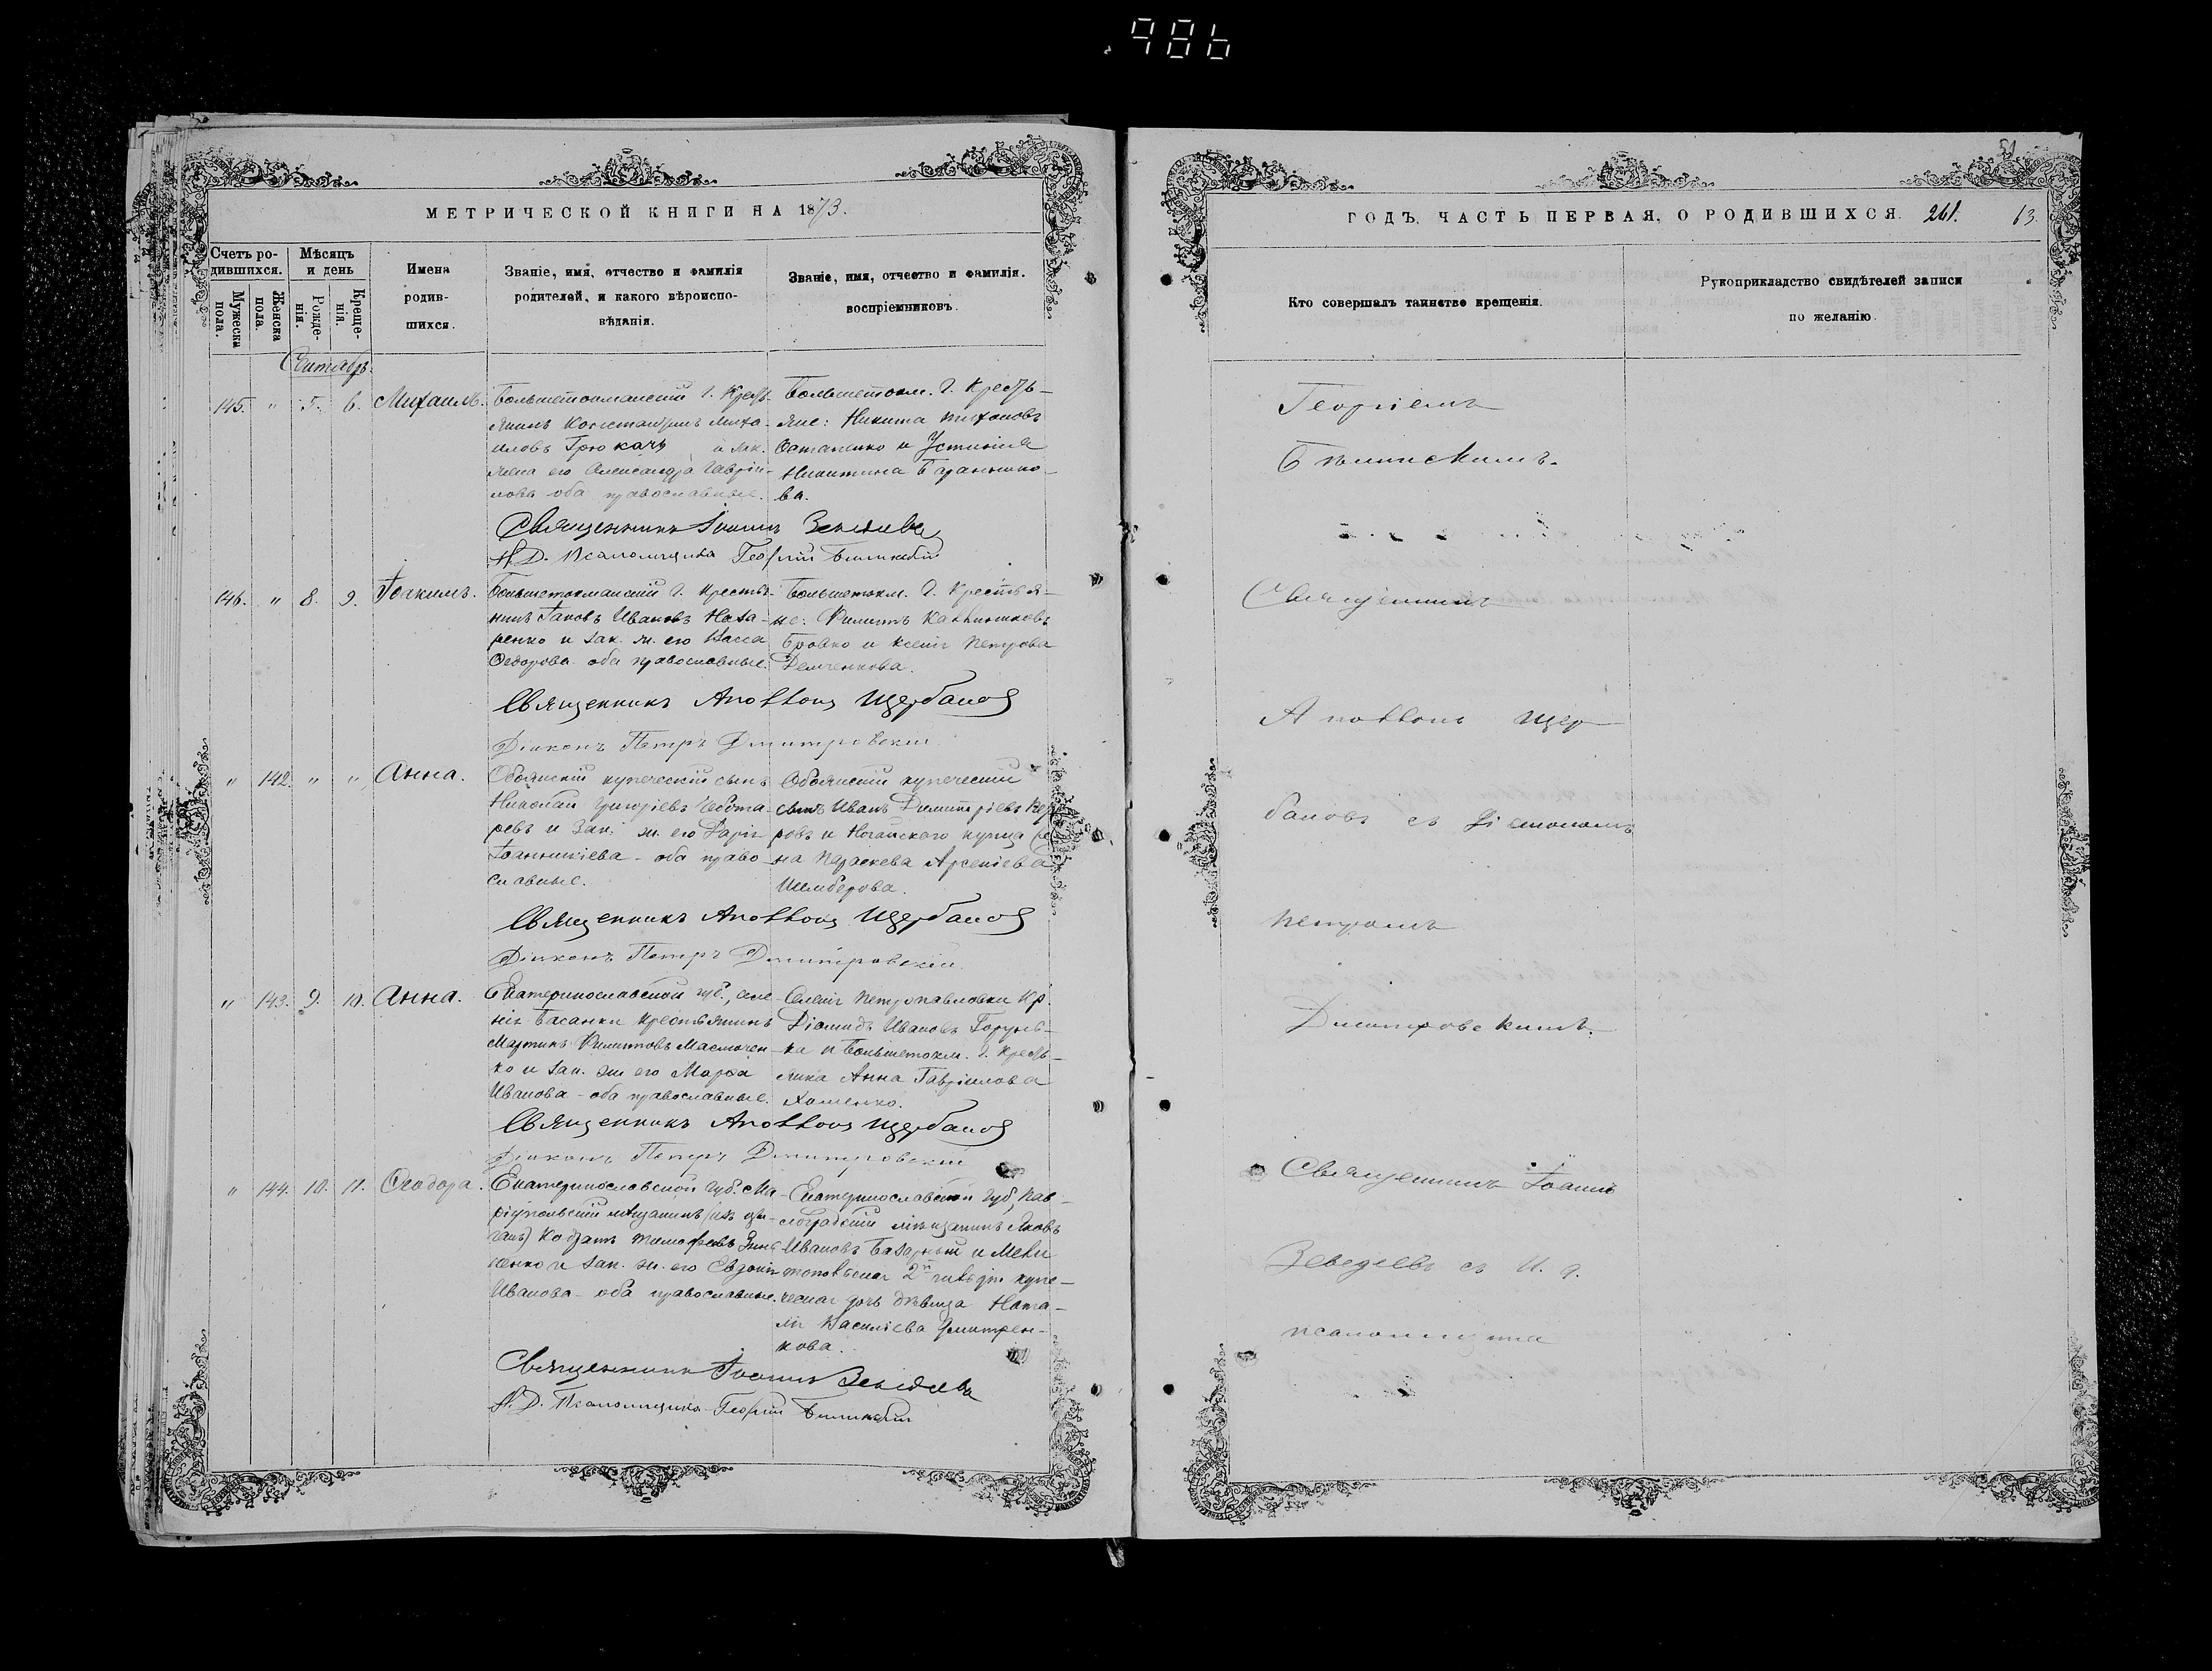 986
МЕТРИЧЕСКОЙ КНИГИ НА 1873.
Счетъ ро-
дившихся.
Мужеска пола.
Женска пола.
Мѣсяцъ
и день
Рожде-
нія.
Креще-
нія.
Имена
родив-
шихся.
Званіе, имя, отчество и фамилія
родителей, и какого вѣроиспо-
вѣданія.
Званіе, имя, отчество и фамилія.
воспріемниковъ.
Сентябрь.
145. " 5. 6. Михаилъ.
Большетокмакскій Г. Кресть-
янинъ Константинъ Миха-
иловъ Грюкачъ и зак.
жена его Александра Гаврiи-
лова оба православные.
Большетокм. Г. Кресть-
яне: Никита Тихоновъ
Остапенко и Устинія
Никитина
ва.
Священникъ Іоаннъ Зеведеевъ
И.Д. Псаломщика Георгій Бѣлинскій
146. " 8. 9. Іоакимъ.
Большетокмакскій Г. Крестья-
нинъ Іаковъ Ивановъ Наза-
ренко и зак. ж. его Васса
Ѳедорова оба православные.
Большетокм. Г. Крестья-
не: Филиппъ Каллиниковъ
Бровко и Ксенія Петрова
Демченкова.
Священникъ Аполлонъ Щербановъ
Діаконъ Петръ Дмитровскій
" 142. " " Анна.
Обоянскій купеческій сынъ
Николай Григоріевъ Чебота-
ревъ и Зак. ж. его Дарія
Іоанникіева - оба право-
славные.
Обоянскій купеческій
сынъ Иванъ Димитріевъ
ровъ и Ногайскаго купца
на Параскева Арсеніева
Шемберова.
Священникъ Аполлонъ Щербановъ
Діаконъ Петръ Дмитровскій
" 143. 9. 10. Анна.
Екатеринославской губ., селе-
нія Басанки крестьянинъ
Мартинъ Филипповъ
ко и зак. ж. его Марѳа
Иванова - оба православные.
Селенія Петропавловки Кр.
Діомидъ Ивановъ
ка и Большетокм. Г. Кресть-
янка Анна Гавріилова
Хоменко.
Священникъ Аполлонъ Щербановъ
Діаконъ Петръ Дмитровскій
" 144. 10. 11. Ѳеодора.
Екатеринославской губ. Ма-
ріупольскій мѣщанинъ (изъ цы-
ганъ) Кодратъ Тимоѳеевъ
ченко и зак. ж. его Евдокія
Иванова - оба православные.
Екатеринославской губ, Пав-
лоградскій мѣщанинъ Яковъ
Ивановъ Базарный и Мели-
топольская 2й гильдіи купе-
ческая дочь дѣвица Ната-
лія Василіева Дмитрен-
кова.
Священникъ Іоаннъ Зеведеевъ
И.Д. Псаломщика Георгій Бѣлинскій
ГОДЪ, ЧАСТЬ ПЕРВАЯ, О РОДИВШИХСЯ. 261. 63.
Кто совершалъ таинство крещенія.
Рукоприкладство свидѣтелей записи
по желанію.
Георгіемъ
Бѣлинскимъ.
Священникъ
Аполлонъ Щер-
бановъ съ Діакономъ
Петромъ
Дмитровскимъ.
Священникъ Іоаннъ
Зеведеевъ съ И. д.
псаломщика